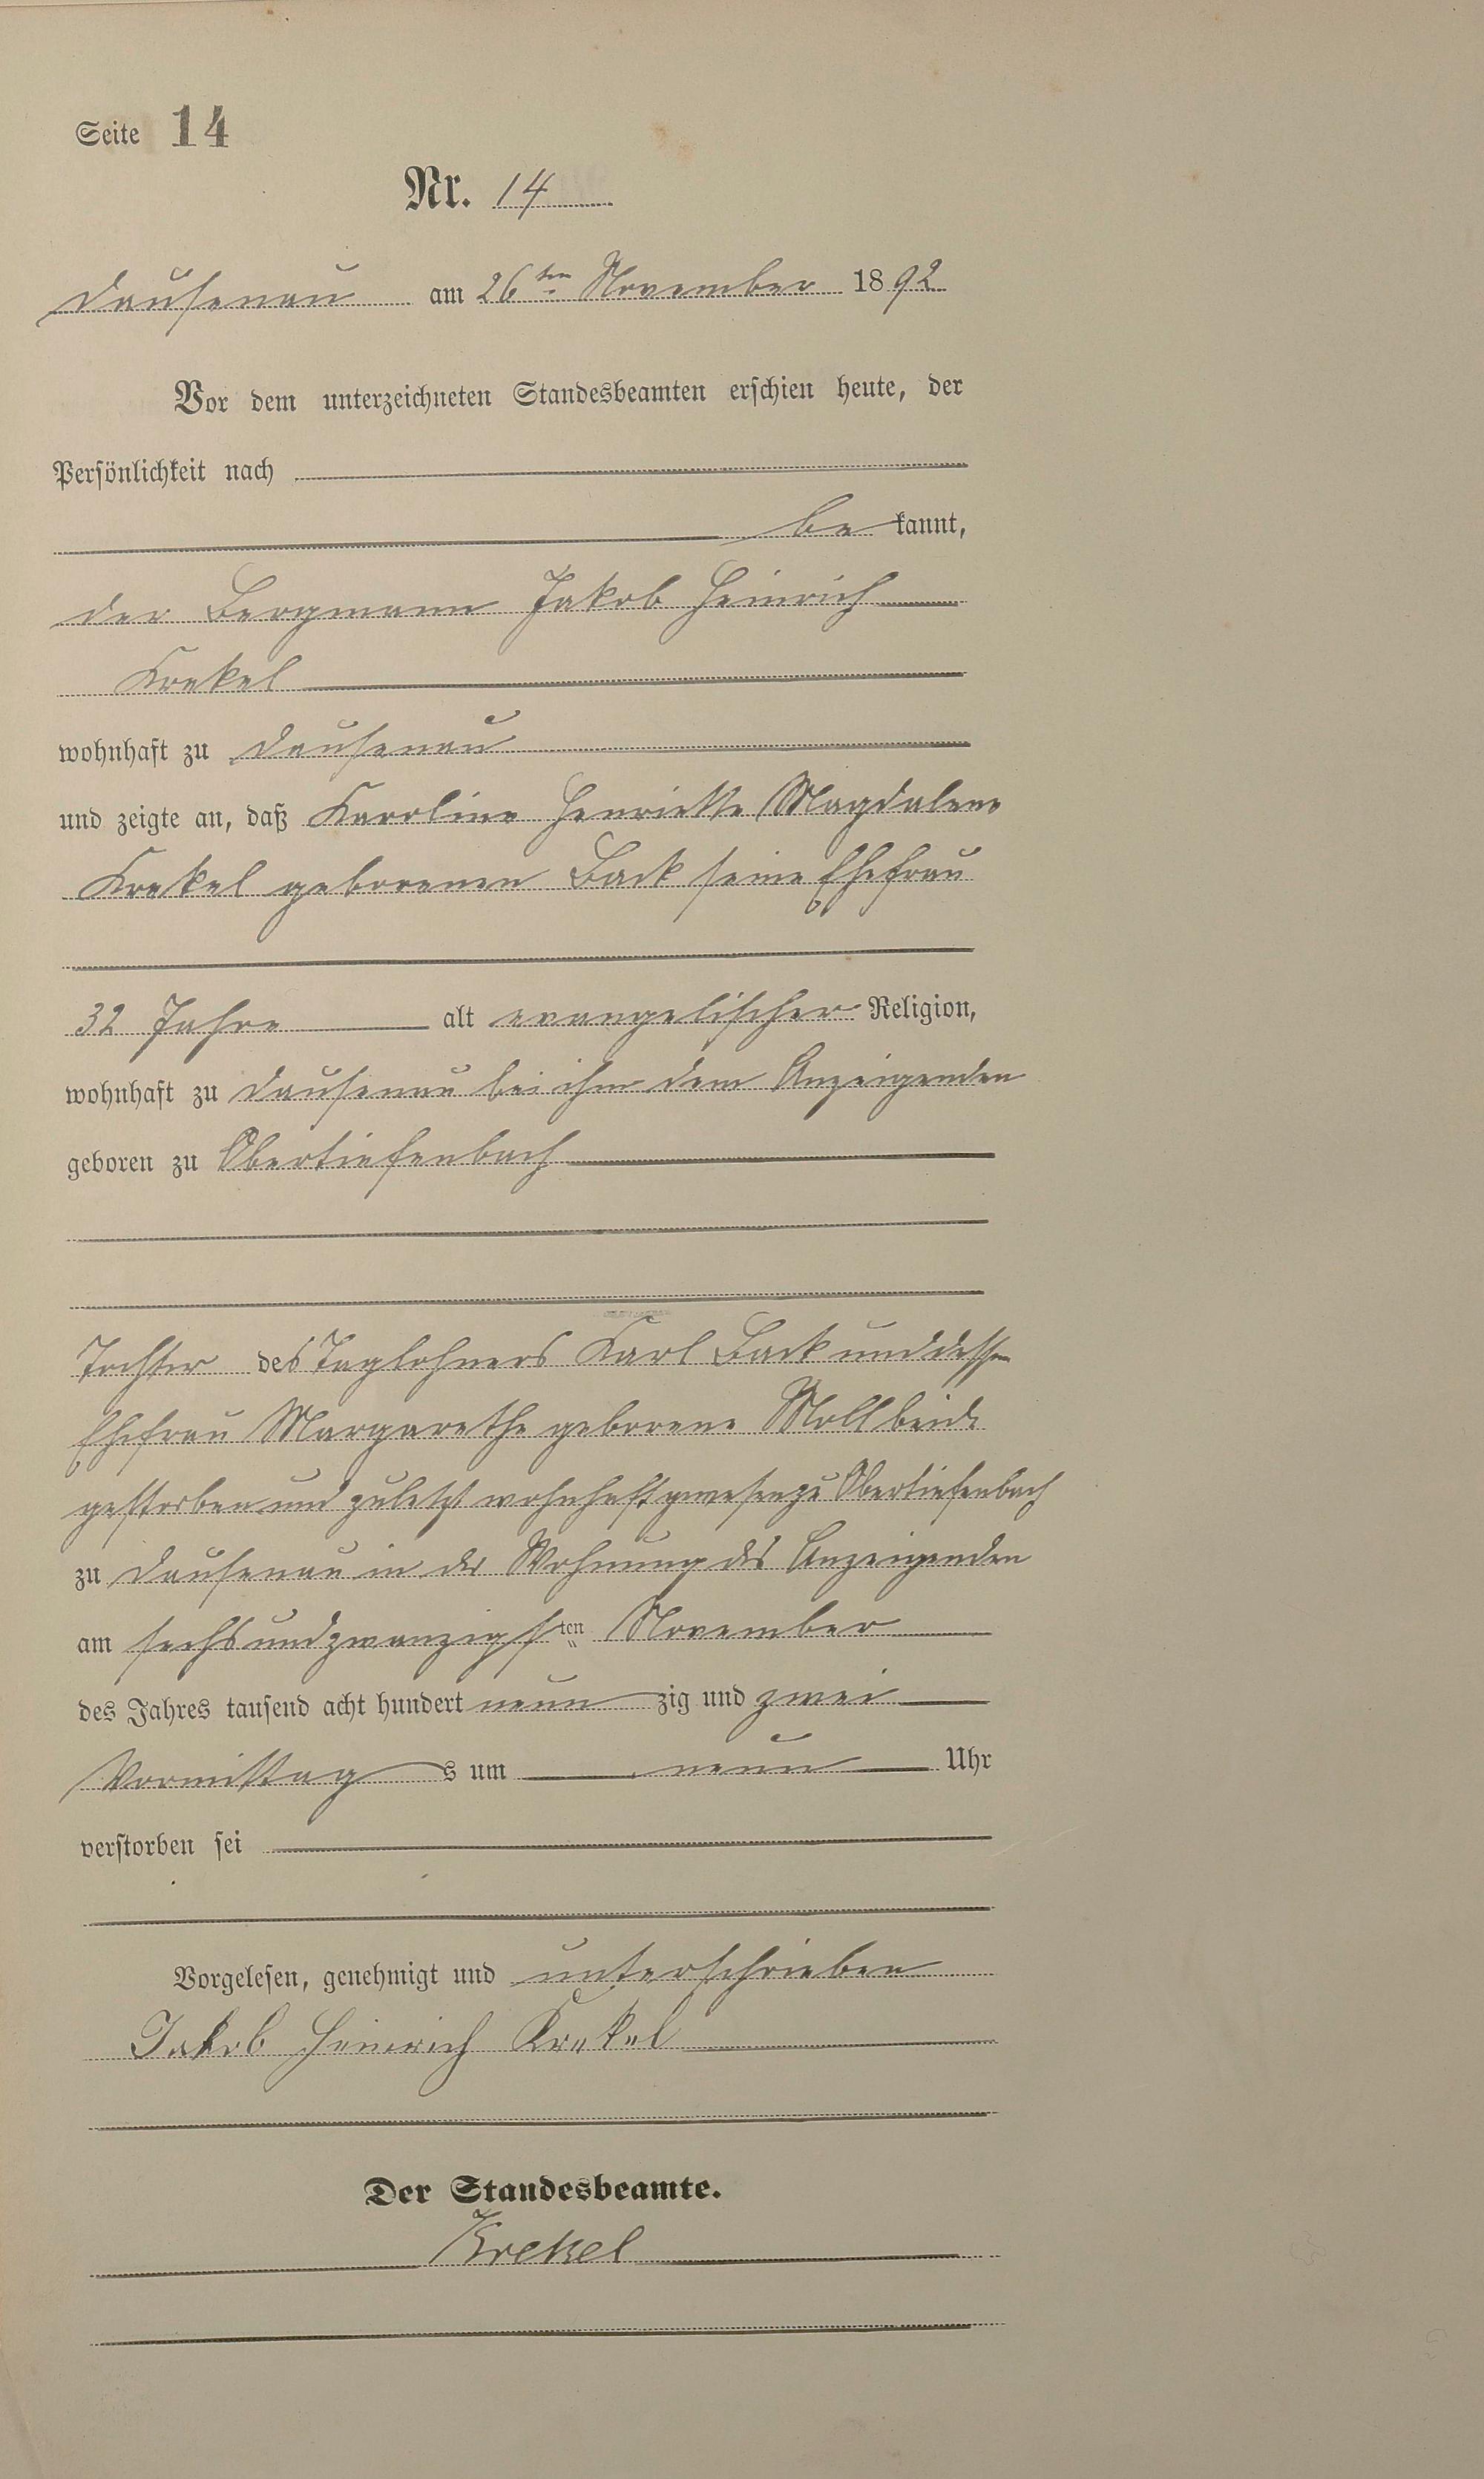 Seite 14
Nr. 14
Dausenau am 26ten November 1892
Vor dem unterzeichneten Standesbeamten erschien heute, der
Persönlichkeit nach
bekannt,
der Bergmann Jakob Heinrich
Krekel
wohnhaft zu Dausenau
und zeigte an, daß Karoline Henriette Magdalene
Krekel geborenen Back seine Ehefrau
32 Jahre alt evangelischer Religion,
wohnhaft zu Dausenau bei ihm dem Anzeigenden
geboren zu Obertiefenbach
Tochter des Taglohners Karl Back und dessen
Ehefrau Margarethe geborene Moll beide
gestorben und zuletzt wohnhaft gewesen zu Obertiefenbach
zu Dausenau in der Wohnung des Anzeigenden
am sechsundzwanzigsten November
des Jahres tausend acht hundert neunzig und zwei
Vormittags um neun Uhr
verstorben sei
Vorgelesen, genehmigt und unterschrieben
Jakob Heinrich Krekel
Der Standesbeamte.
Krekel